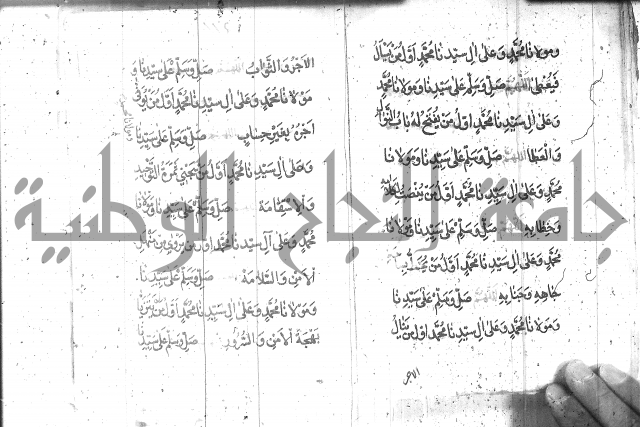 ومولانا محمد وعلى ال سيدنا محمد اول من ينال
صل وسلم على سيدنا ومولانا محمد
وعلى ال سيدنا محمد اول من يفتح له باب
والعطا اللهم صل وسلم على سيدنا ومولانا
محمد وعلى ال سيدنا محمد اول من
وخطابه اللهم صل وسلم على سيدنا ومولانا
محمد وعلى ال سيدنا محمد اول من
جاهه وجنابه اللهم صل وسلم على سيدنا
ومولانا محمد وعلى ال سيدنا محمد اول من ينال
الاجر
الاجر والثواب اللهم صل وسلم على سيدنا و
مولانا محمد وعلى ال سيدنا محمد اول من توفى
اجره بغير حساب صل وسلم على سيدنا
وعلى ال سيدنا محمد اول من يجني ثمرة التوحيد
والاستقامة صل وسلم على سيدنا ومولانا
محمد وعلى ال سيدنا محمد اول من
الامن والسلامة صل وسلم على سيدنا
ومولانا محمد وعلى ال سيدنا محمد اول من
بهجة الامن والسرور صل وسلم على سيدنا
جامعة النجاح الوطنية